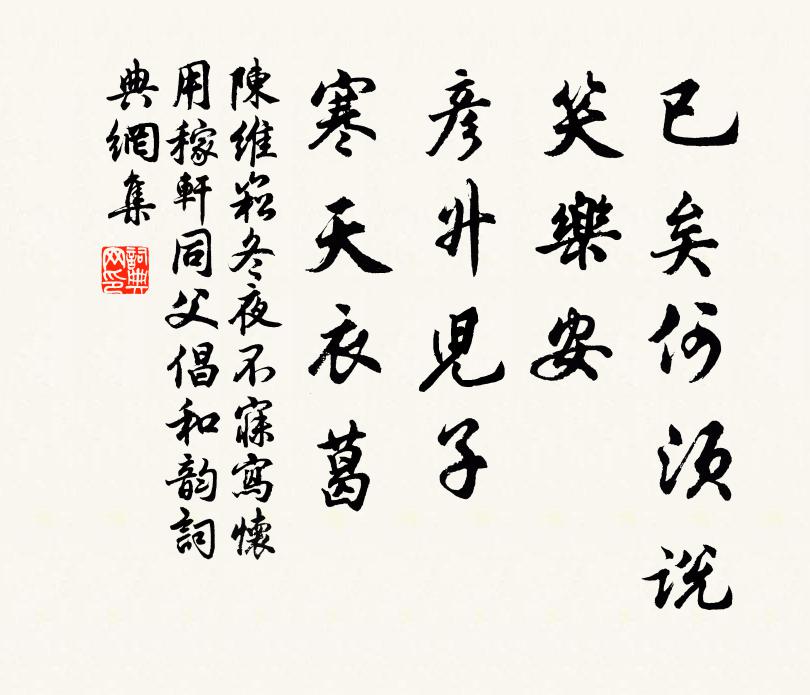 已矣何須說
笑樂安
彥升兒子
寒天衣葛
陳維崧冬夜不寐寫懷
用稼軒同父倡和韵詞
典網集
詞典網印